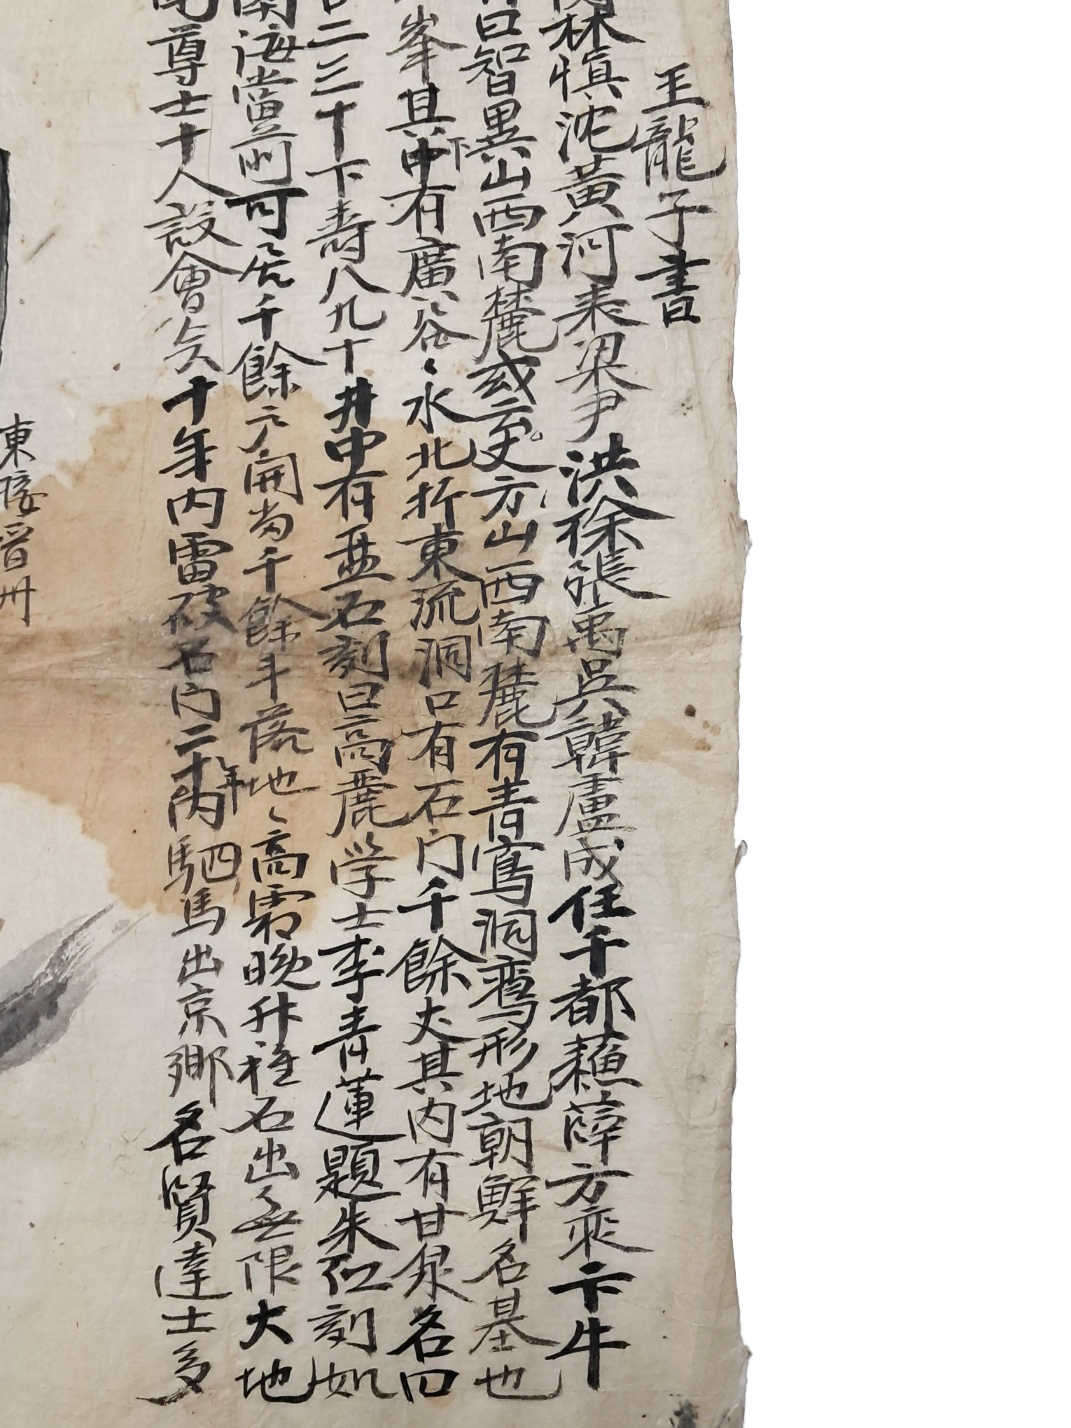 王龍子書
林愼沈黃河表梁尹洪徐張禹吳韓盧成任千都蘓薛方乘卞牛
曰智異山西南麓或云丈方山西南麓有青鶴洞鸞形地朝鮮名基也
峯其中下有廣谷〻水北折東流洞口有石门千餘丈其内有甘泉名曰
二三十下壽八九十井中有盖石刻曰高麗学士李青蓮題朱紅刻如
南海當前可居千餘户開畓千餘斗落地〻高霜晩升种石出無限大地
尊士十人設會矣十年内雷破石门二十年内駟馬出京鄉名賢達士多
東接晋州